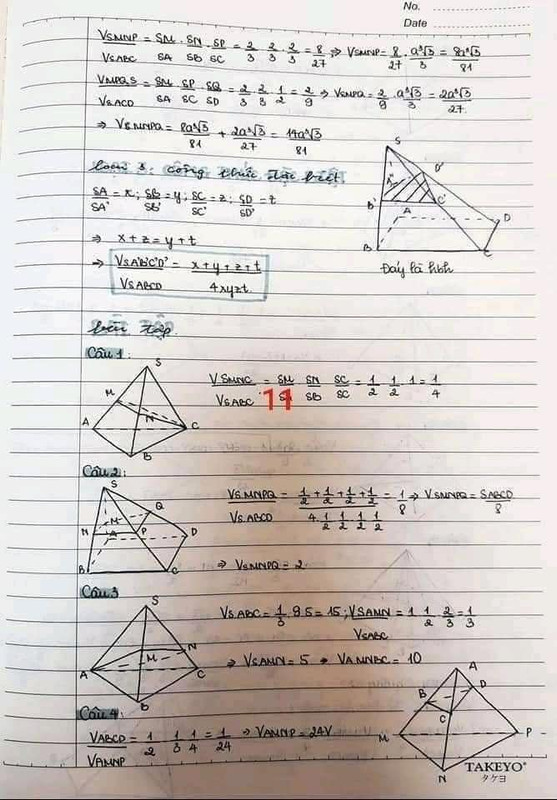 No.
Date
VSMNP/VSABC = SM/SA . SN/SB . SP/SC = 2/3 . 2/3 . 2/3 = 8/27 => VSMNP = 8/27 . a³√3/3 = 8a³√3/81
VMPQS/VSACD = SM/SA . SP/SC . SQ/SD = 2/3 . 2/3 . 1/2 = 2/9 => VSMPQ = 2/9 . a³√3/3 = 2a³√3/27
=> VSMNPQ = 8a³√3/81 + 2a³√3/27 = 14a³√3/81
Loại 3: công thức đặc biệt
SA/SA' = x ; SB/SB' = y ; SC/SC' = z ; SD/SD' = t
=> x+z = y+t
=> VSA'B'C'D'/VSABCD = x+y+z+t/4xyzt
S
A'
D'
B'
C'
A
D
B
C
Đáy là hbh
Câu 1:
S
M
N
A
C
B
VSMNC/VSABC = SM/SA SN/SB SC/SC = 1/2 1/2 1 = 1/4
11
Câu 2:
S
Q
M
N
A
P
D
B
C
VSMNPQ/VSABCD = 1/2+1/2+1/2+1/2/4.1/2 1/2 1/2 1/2 = 1/8 => VSMNPQ = SABCD/8
=> VSMNPQ = 2
Câu 3
S
N
M
A
C
B
VSABC = 1/3 . 9.5 = 15 ; VSAMN/VSABC = 1 1/2 2/3 = 1/3
=> VSAMN = 5 => VAMNBC = 10
Câu 4:
VABCD/VAMNP = 1/2 1/3 1/4 = 1/24 => VAMNP = 24V
A
B
D
C
M
P
N
TAKEYO®
タケヨ